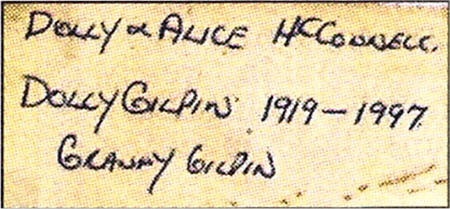 Dolly & Alice McConnell.
Dolly Gilpin 1919-1997
Granny Gilpin